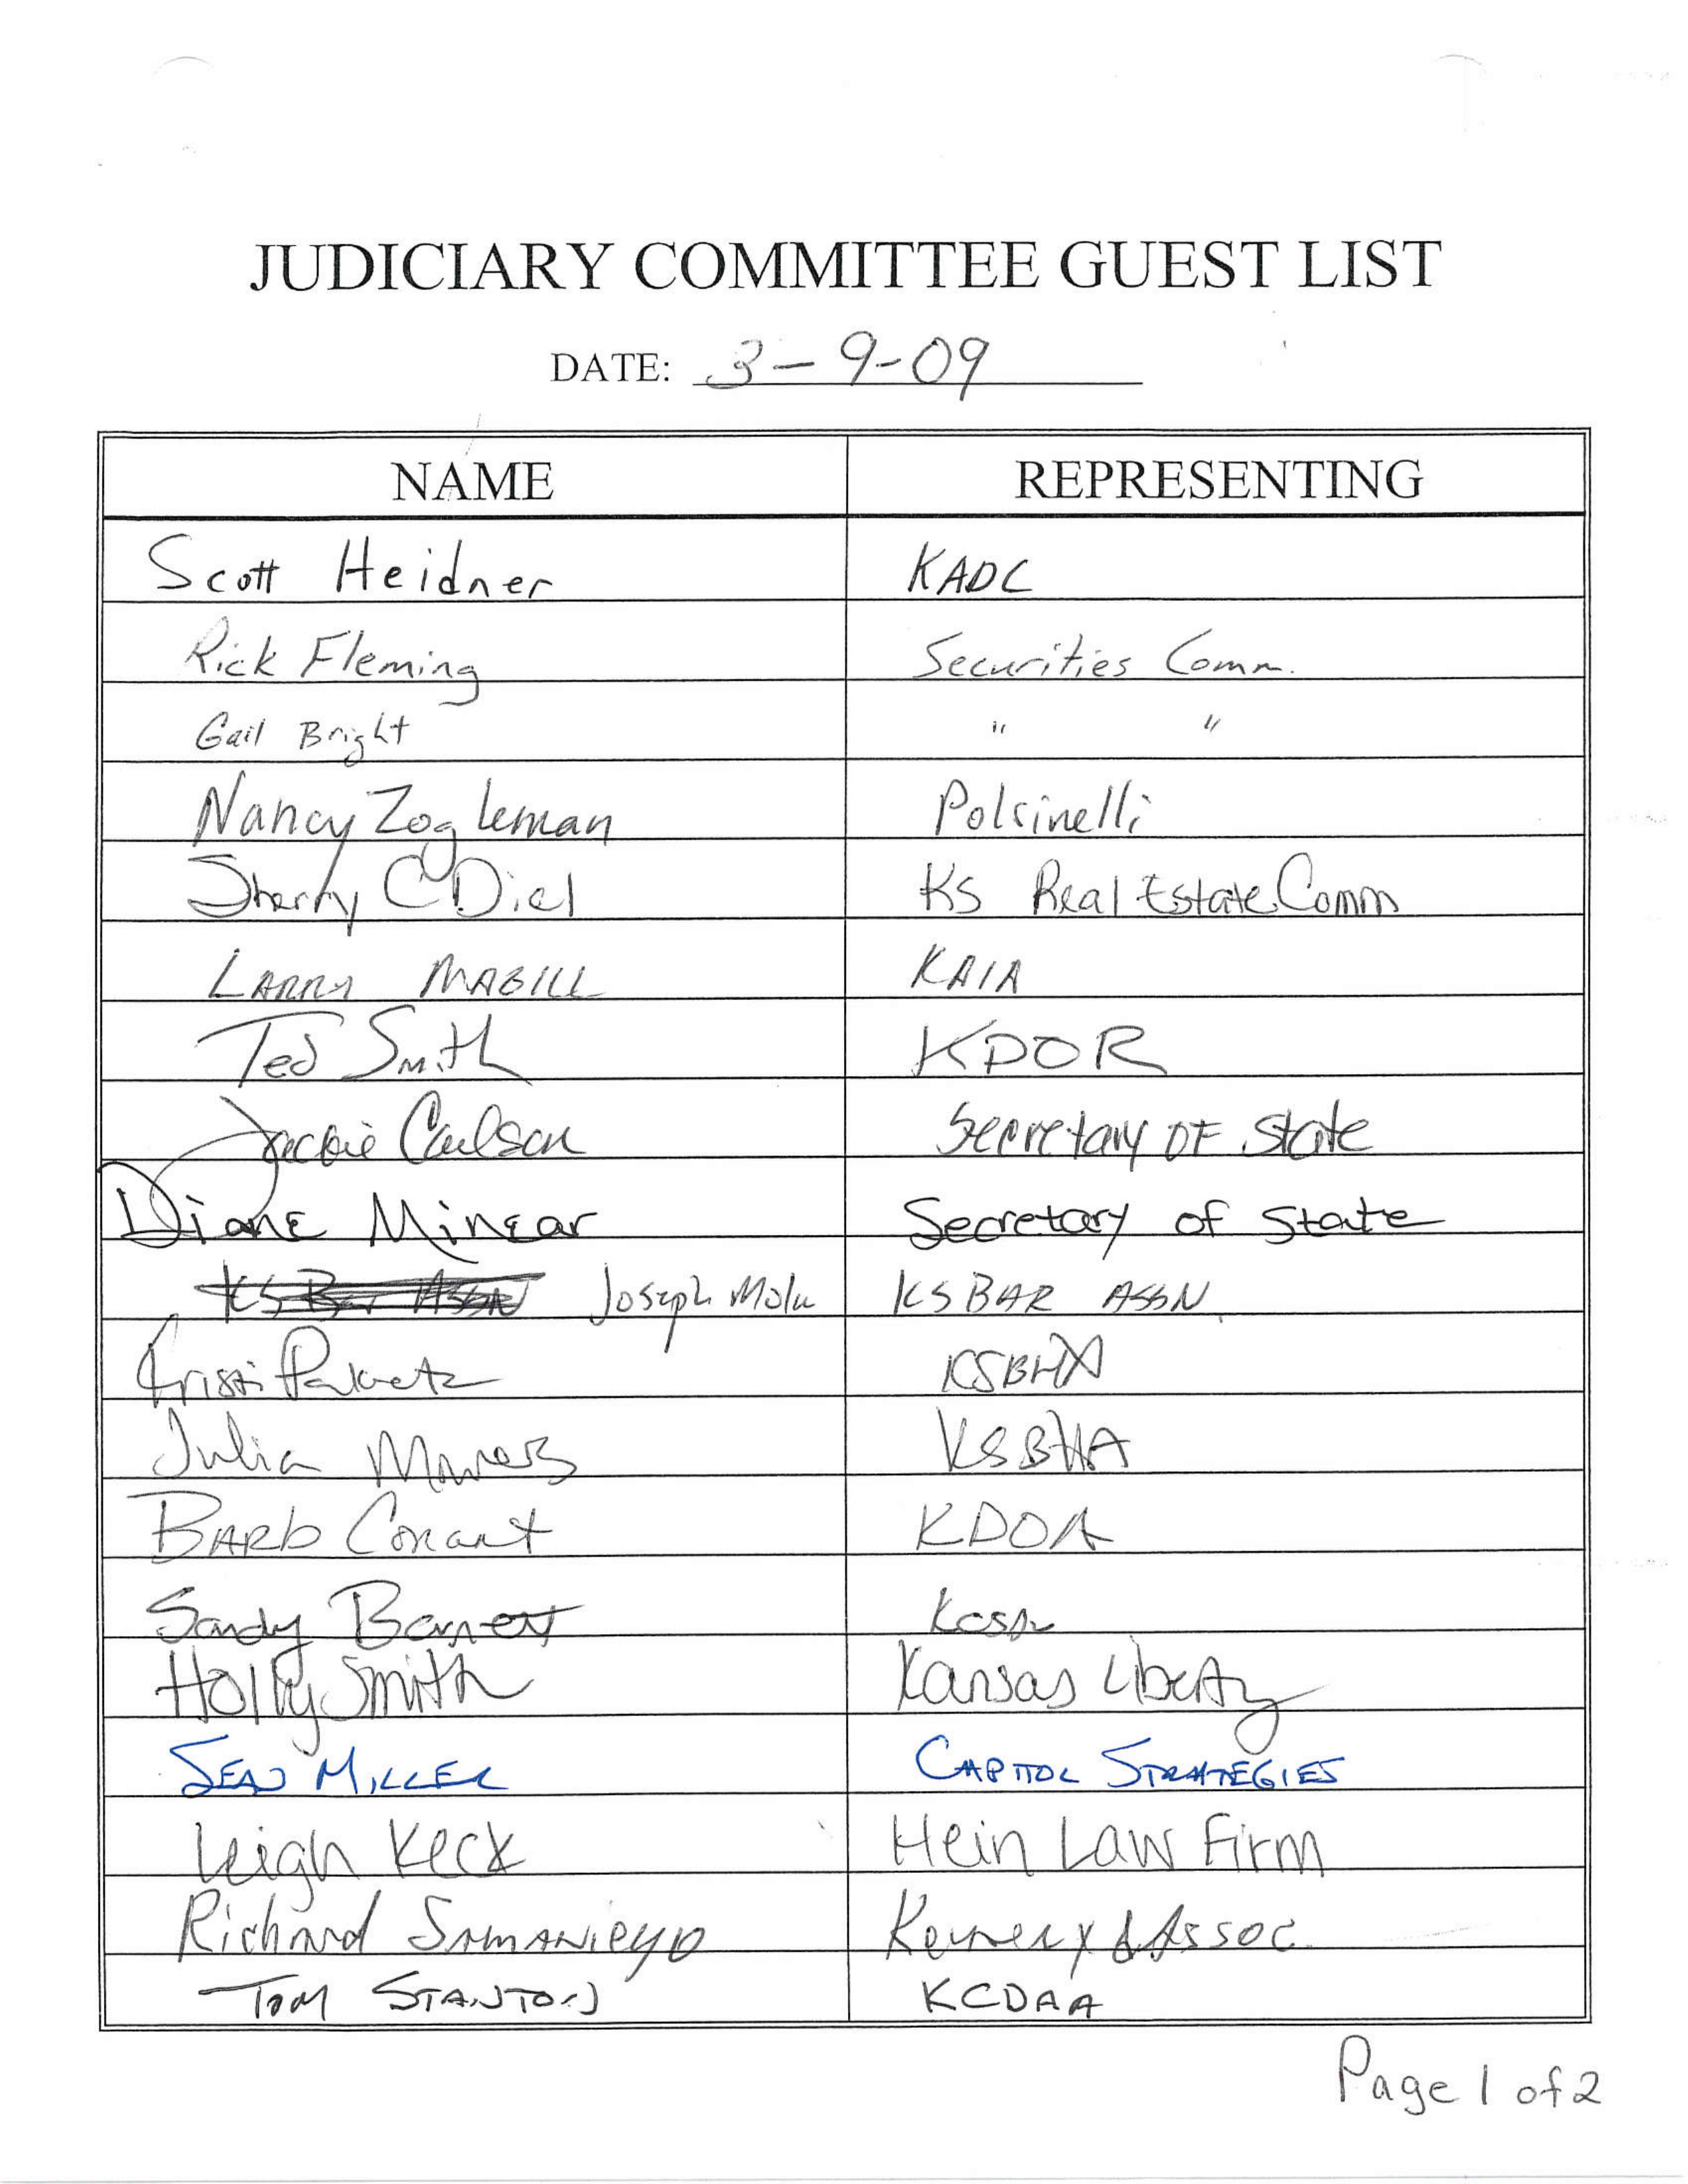 JUDICIARY COMMITTEE GUEST LIST
DATE: 3-9-09
NAME REPRESENTING
Scott Heidner KADC
Rick Fleming Securities Comm.
Gail Bright " "
Nancy Zogleman Polsinelli
Sherry C Diel KS Real Estate Comm
LARRY MAGILL KAIA
Ted Smith KDOR
Jackie Carlson Secretary OF State
Diane Minear Secretary of State
KS Bar Assn Joseph Mola KS BAR ASSN
Kristi KSBHA
Julia Mowers KSBHA
BARb Conant KDOA
Sandy Barnett
Holly Smith Kansas Liberty
SEAN MILLER CAPITOL STRATEGIES
Leigh Keck Hein Law Firm
Richard SAMANiego Kearney & Assoc.
TOM STANTON KCDAA
Page 1 of 2